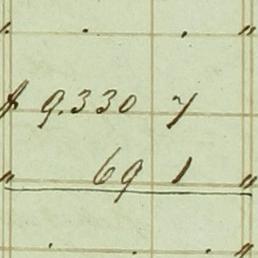 " . . "
$ 9.330 7
" 69 1 "
. . . "